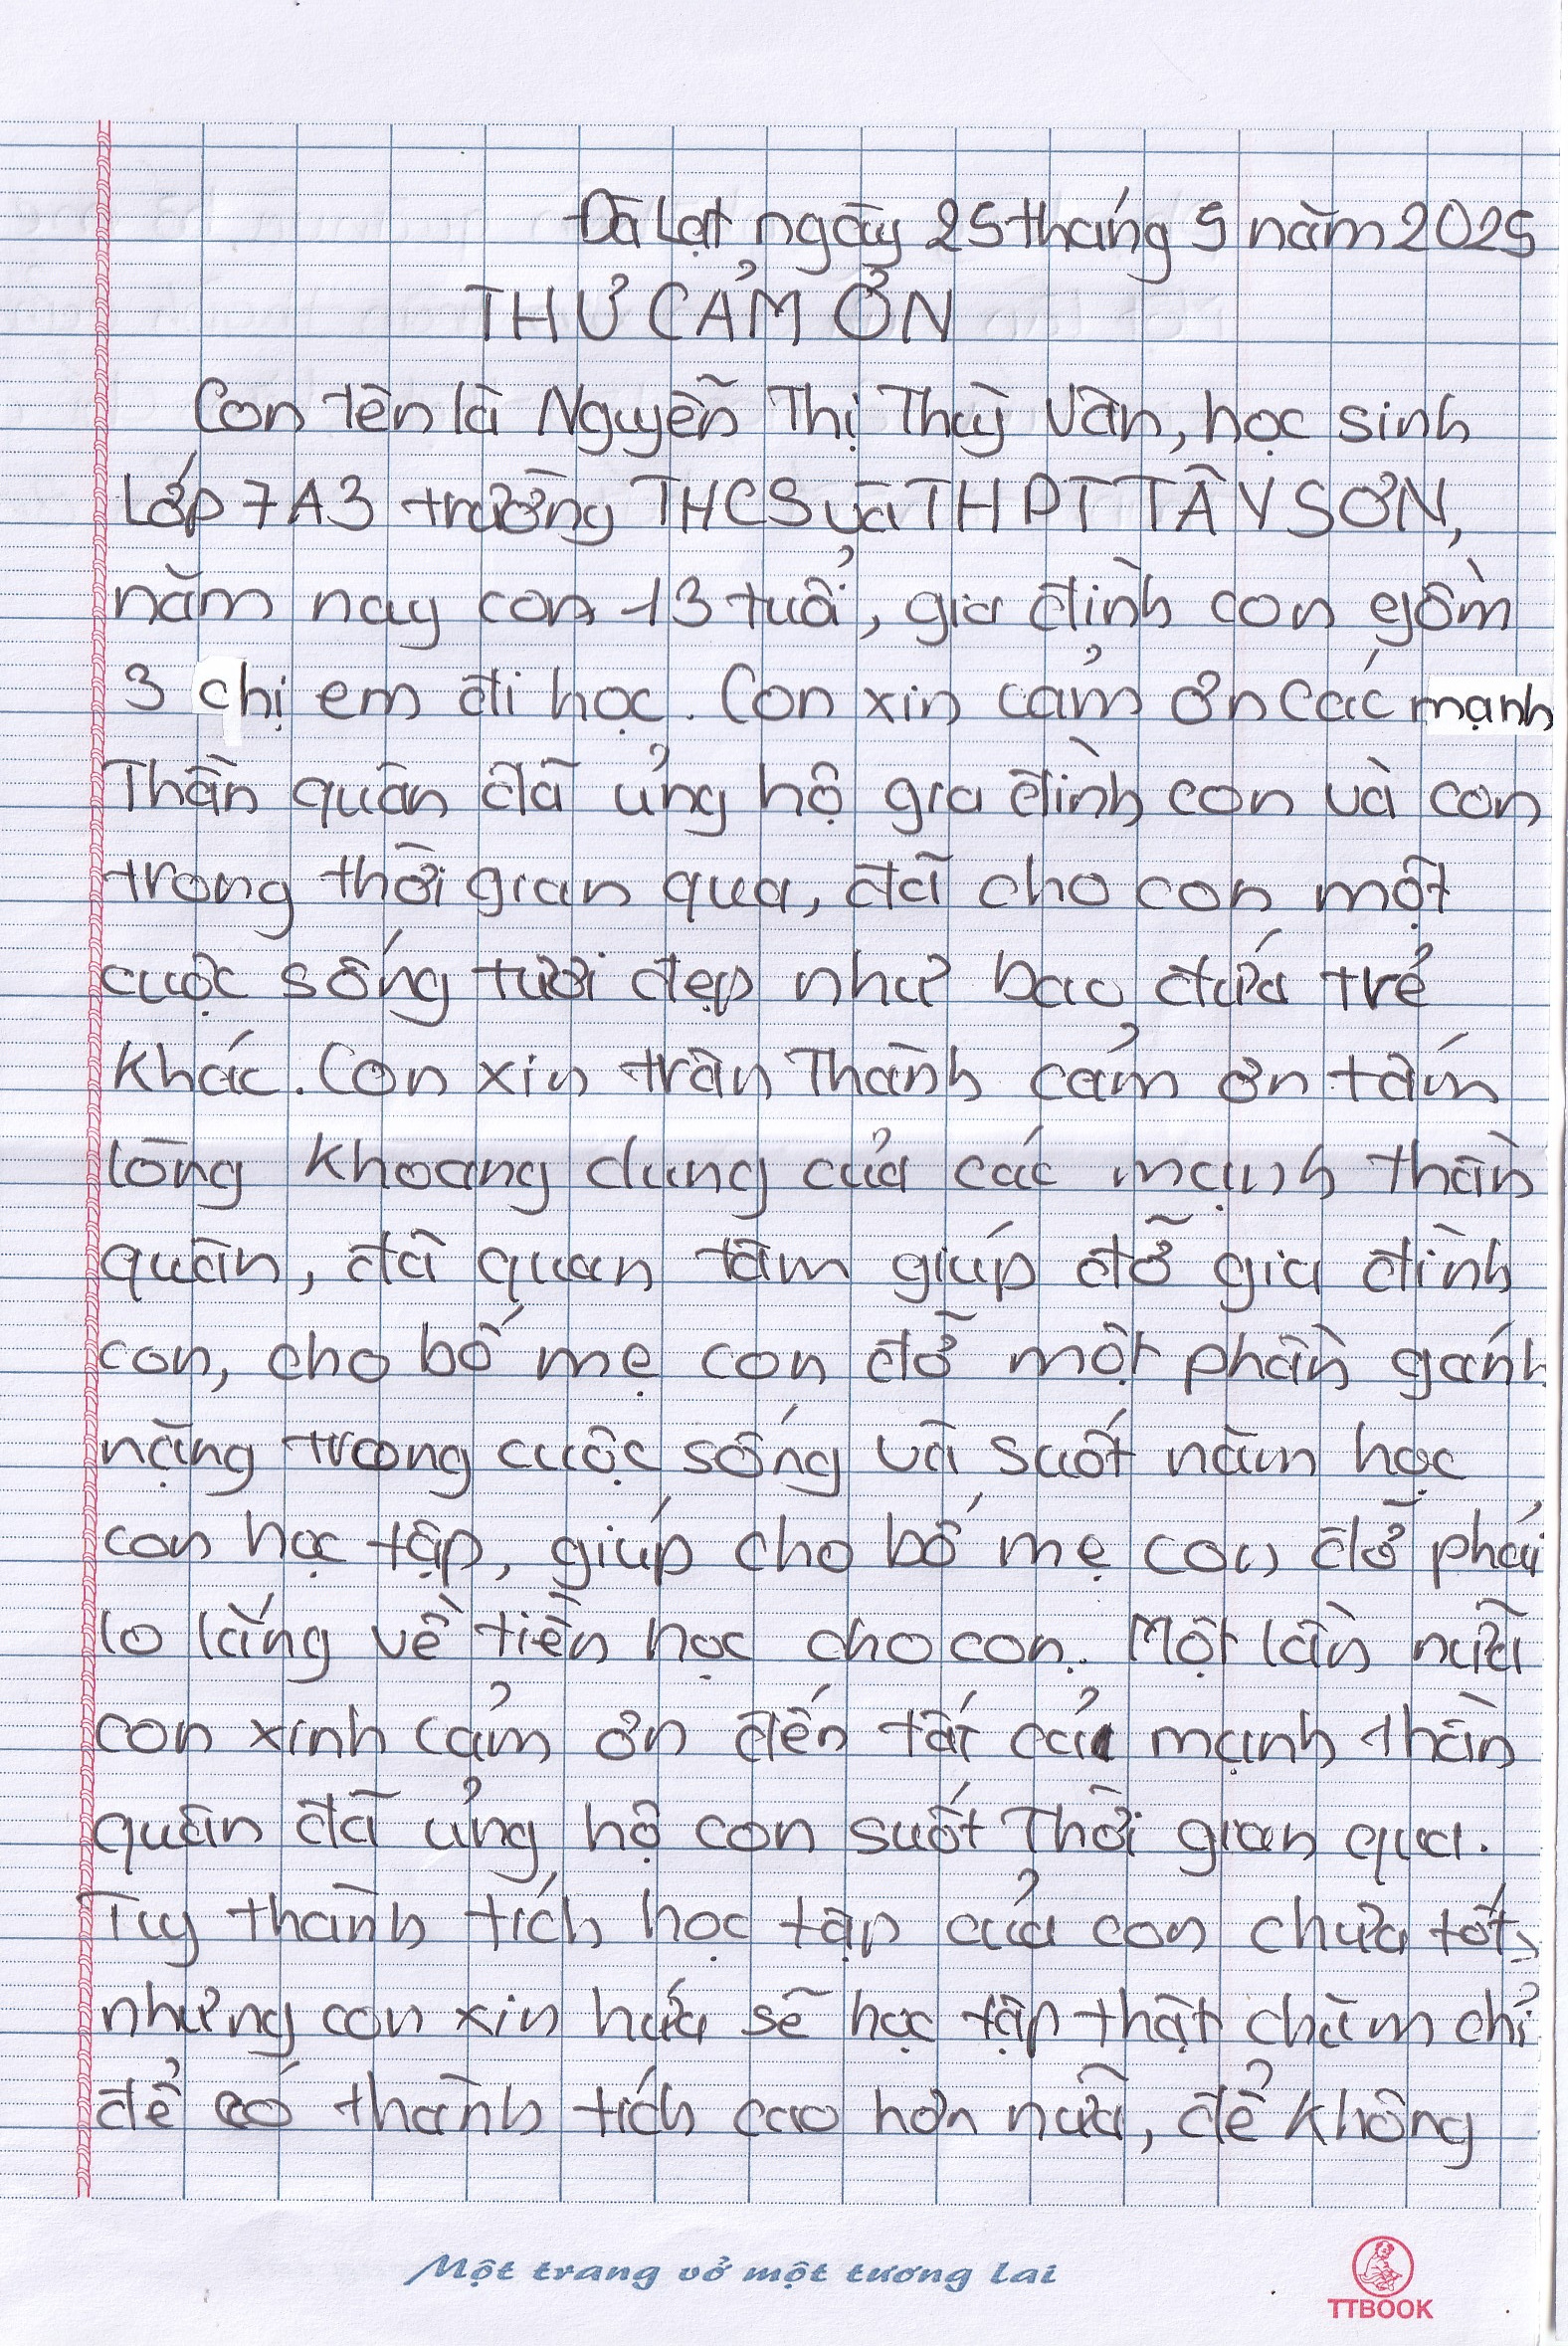 Đà Lạt ngày 25 tháng 5 năm 2025
THƯ CẢM ƠN
Con tên là Nguyễn Thị Thuỳ Vân, học sinh
Lớp 7A3 trường THCS và THPT TÂY SƠN,
năm nay con 13 tuổi, gia đình con gồm
3 chị em đi học. Con xin cảm ơn các mạnh
Thần quân đã ủng hộ gia đình con và con
trong thời gian qua, đã cho con một
cuộc sống tươi đẹp như bao đứa trẻ
khác. Con xin trân Thành cảm ơn tấm
lòng khoang dung của các mạnh thần
quân, đã quan tâm giúp đỡ gia đình
con, cho bố mẹ con đỡ một phần gánh
nặng trong cuộc sống và suốt năm học
con học tập, giúp cho bố mẹ con đỡ phải
lo lắng về tiền học cho con. Một lần nữa
con xinh cảm ơn đến tất cả mạnh thần
quân đã ủng hộ con suốt Thời gian qua.
Tuy thành tích học tập của con chưa tốt,
nhưng con xin hứa sẽ học tập thật chăm chỉ
để có thành tích cao hơn nữa, để không
Một trang vở một tương lai
TTBOOK